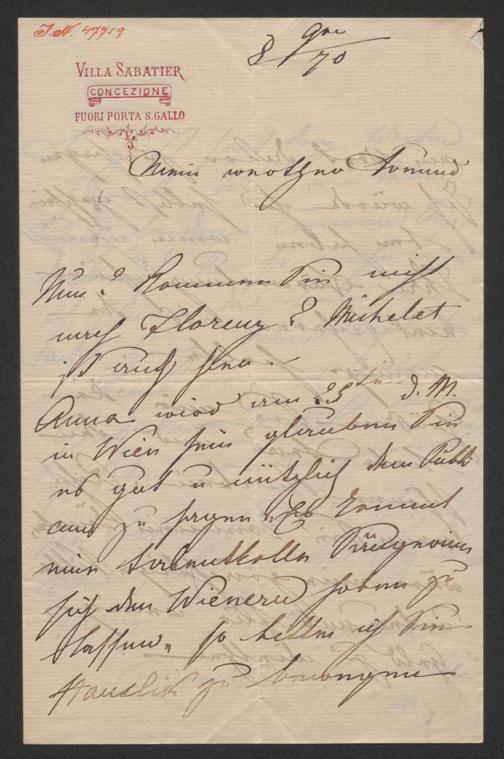 J. N. 47759
8 9bre / 70
VILLA SABATIER
CONCEZIONE
FUORI PORTA S. GALLO
Mein werther Freund
Nun? Kommen Sie nicht
nach Florenz? Michelet
ist auch hier.
Anna wird am 25ten d. M.
in Wien sein glauben Sie
es gut u nützlich dem Publi
cum zu sagen „Es kommt
eine talentvolle Sängerin
sich den Wienern hören zu
lassen“ so bitte ich Sie
Hanslik zu bewegen